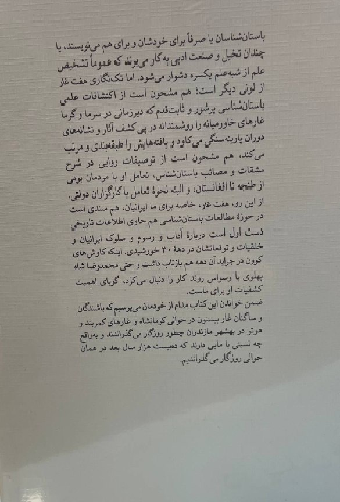 باستان‌شناسان یا صرفاً برای خودشان و برای هم می‌نویسند، یا
چندان تخیل و صنعت ادبی به کار می‌برند که عموماً تشخیص
علم از شبه‌علم یکسره دشوار می‌شود. اما تک‌نگاری هفت غار
از لونی دیگر است؛ هم مشحون است از اکتشافات علمی
باستان‌شناسی پرشور و ثابت‌قدم که دیرزمانی در سرما و گرما
غارهای خاورمیانه را روشمندانه در پی کشف آثار و نشانه‌های
دوران پارینه‌سنگی می‌کاود و یافته‌هایش را طبقه‌بندی و مرتب
می‌کند، هم مشحون است از توصیفات روایی در شرح
مشقات و مصائب باستان‌شناس، تعامل او با مردمان بومی
از طنجه تا افغانستان، و البته نحوهٔ تعامل با کارگزاران دولتی.
از این رو، هفت غار، خاصه برای ما ایرانیان، هم سندی است
در حوزهٔ مطالعات باستان‌شناسی هم حاوی اطلاعات تاریخی
دست اول است دربارهٔ آداب و رسوم و سلوک ایرانیان و
خلقیات و توانمانشان در دههٔ ۳۰ خورشیدی. اینکه کاوش‌های
کوون در جراید آن دهه هم بازتاب داشت و حتی محمدرضا شاه
پهلوی با وسواس روند کار را دنبال می‌کرد، گویای اهمیت
کشفیات او برای ماست.
ضمن خواندن این کتاب مدام از خودمان می‌پرسیم که باشندگان
و ساکنان غار بیستون در حوالی کرمانشاه و غارهای کمربند و
هوتو در بهشهر مازندران چطور روزگار می‌گذراندند و به‌واقع
چه نسبتی با مایی دارند که دویست هزار سال بعد در همان
حوالی روزگار می‌گذرانیم.